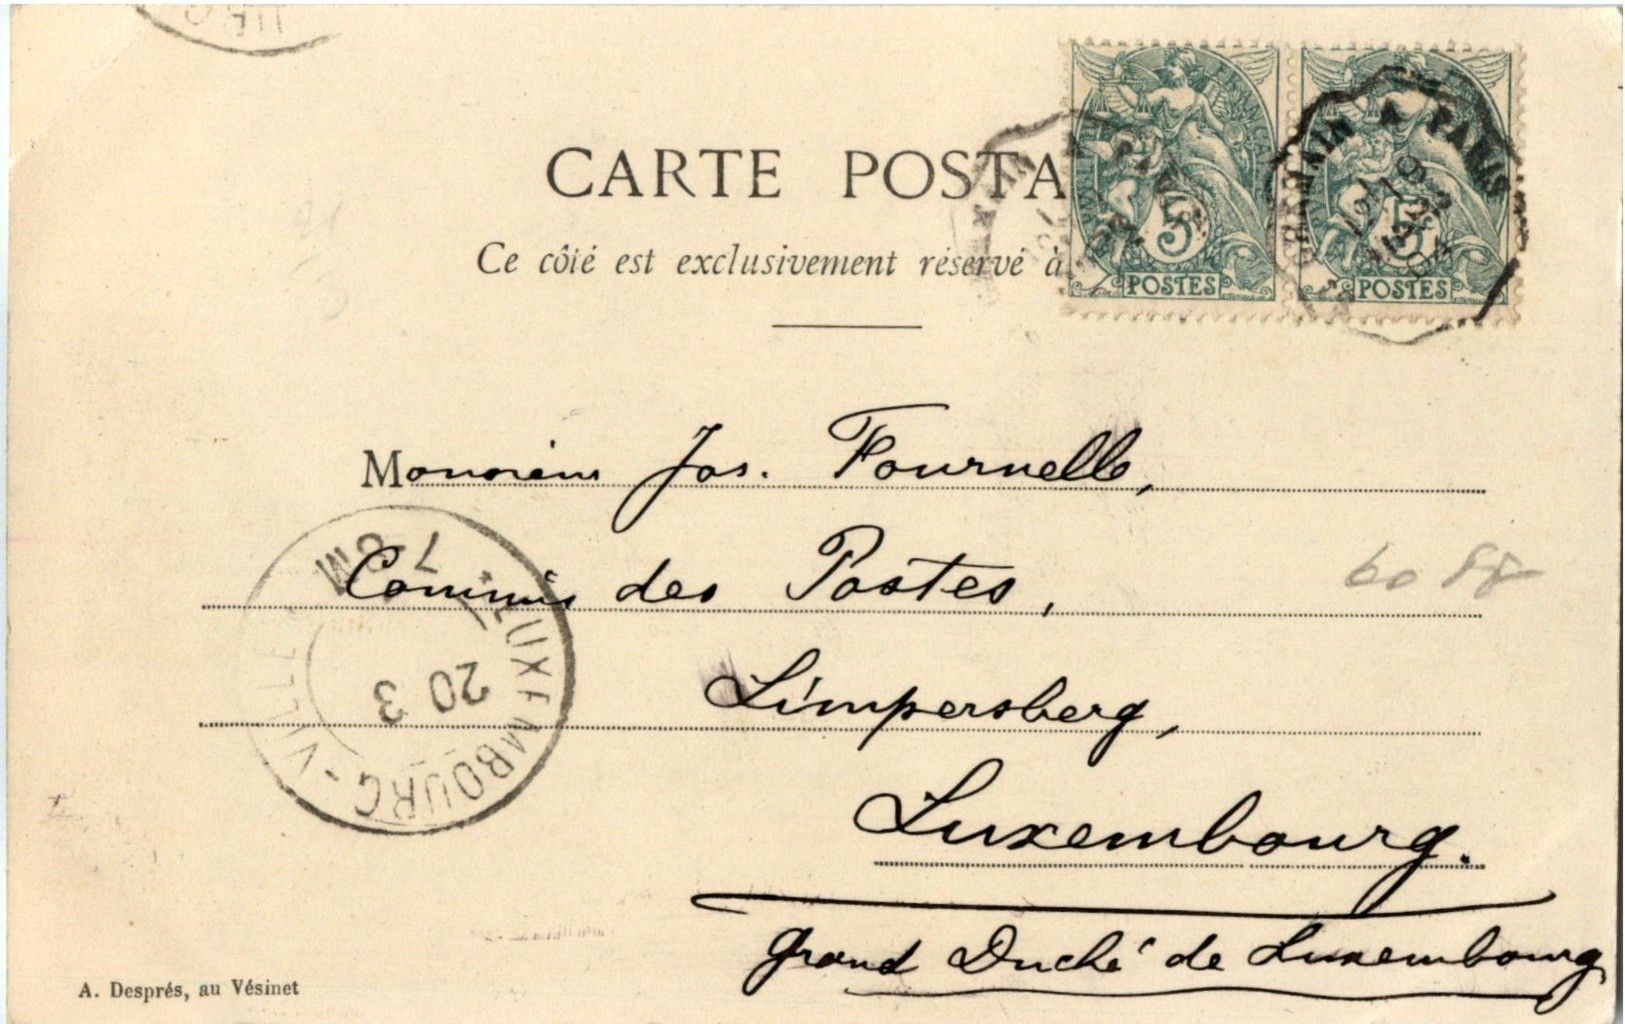 CARTE POSTA
Ce côté est exclusivement réservé à
5
POSTES
5
POSTES
GERMAIN A PARIS
Monsieur Jos. Fournelle,
Commis des Postes,
Limpersberg,
Luxembourg.
Grand Duché de Luxembourg
LUXEMBOURG-VILLE
20 3
7-8M
60 88
A. Després, au Vésinet